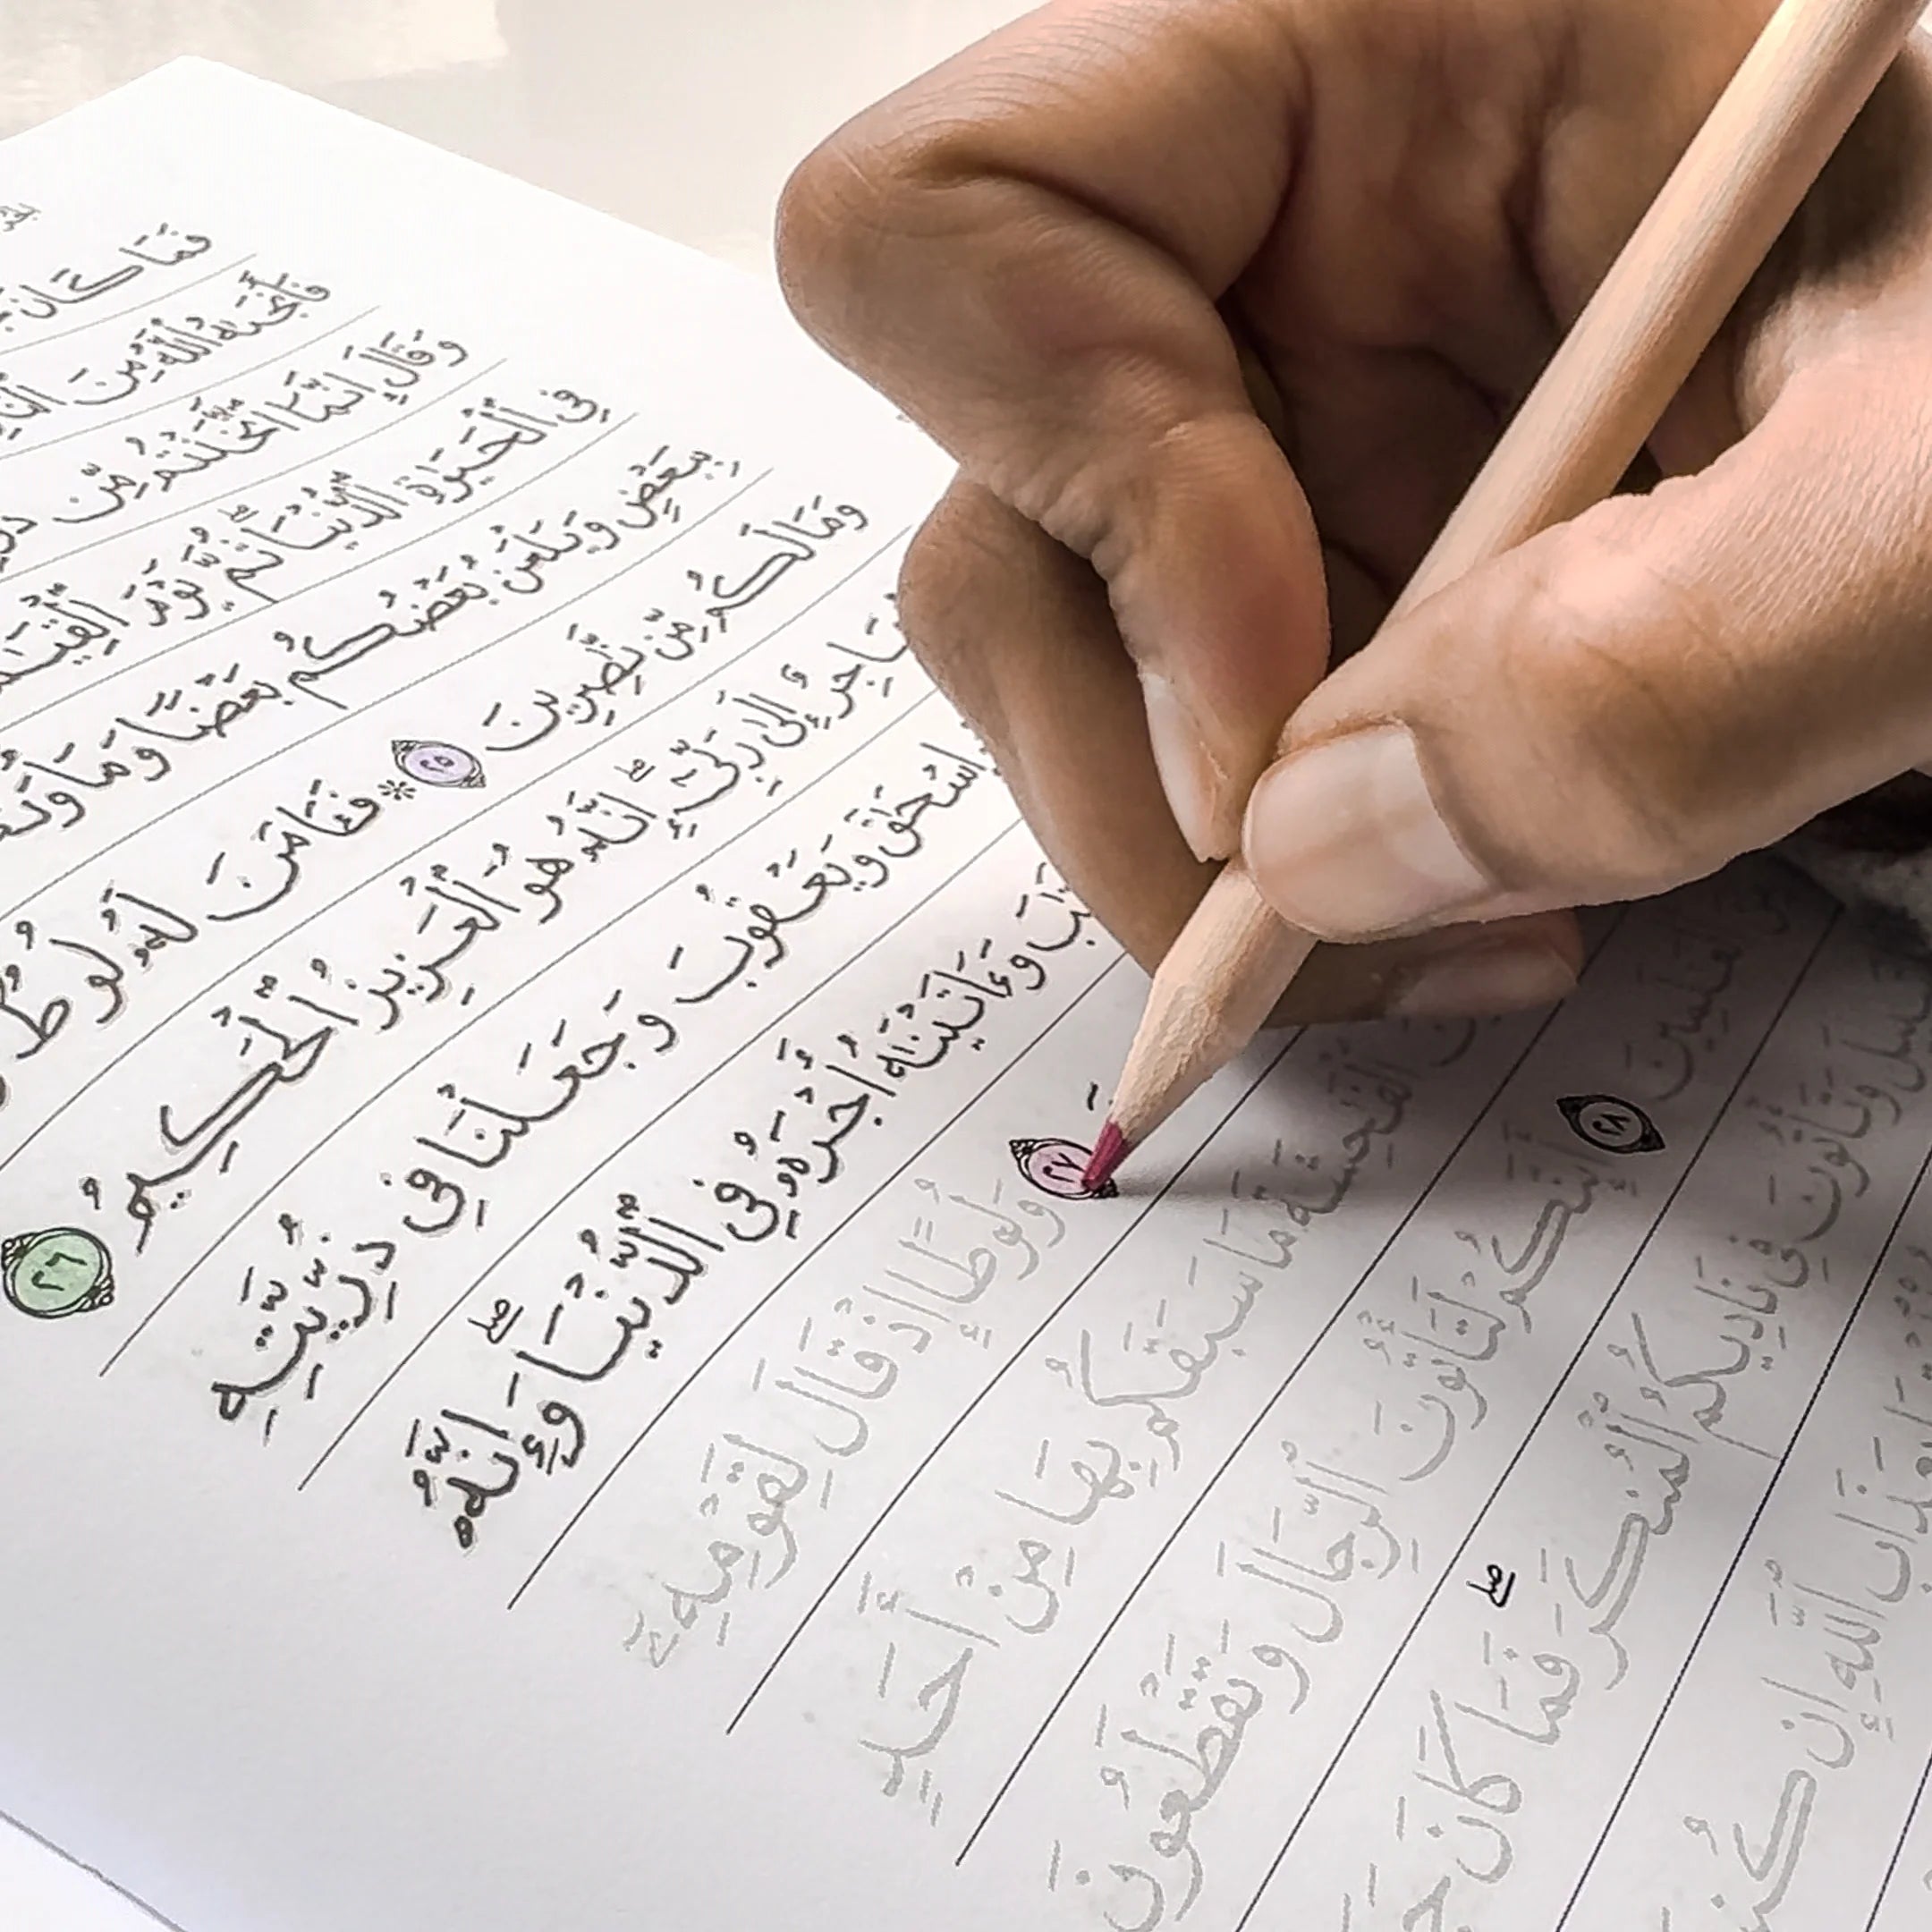 فَمَا كَانَ
فَأَنجَىٰهُ ٱللَّهُ مِنَ
وَقَالَ إِنَّمَا ٱتَّخَذْتُم مِّن
فِى ٱلْحَيَوٰةِ ٱلدُّنْيَا ۖ ثُمَّ يَوْمَ
بِبَعْضٍ وَيَلْعَنُ بَعْضُكُم بَعْضًا
وَمَا لَكُم مِّن نَّـٰصِرِينَ ٢٥ * فَـَٔامَنَ لَهُۥ لُوطٌ
إِلَىٰ رَبِّىٓ ۖ إِنَّهُۥ هُوَ ٱلْعَزِيزُ ٱلْحَكِيمُ ٢٦
إِسْحَـٰقَ وَيَعْقُوبَ وَجَعَلْنَا فِى ذُرِّيَّتِهِ
وَءَاتَيْنَـٰهُ أَجْرَهُۥ فِى ٱلدُّنْيَا ۖ وَإِنَّهُۥ
٢٧ وَلُوطًا إِذْ قَالَ لِقَوْمِهِۦٓ
ٱلْفَـٰحِشَةَ مَا سَبَقَكُم بِهَا مِنْ أَحَدٍ
٢٨ أَئِنَّكُمْ لَتَأْتُونَ ٱلرِّجَالَ وَتَقْطَعُونَ
وَتَأْتُونَ فِى نَادِيكُمُ ٱلْمُنكَرَ ۖ فَمَا كَانَ
بِعَذَابِ ٱللَّهِ إِن